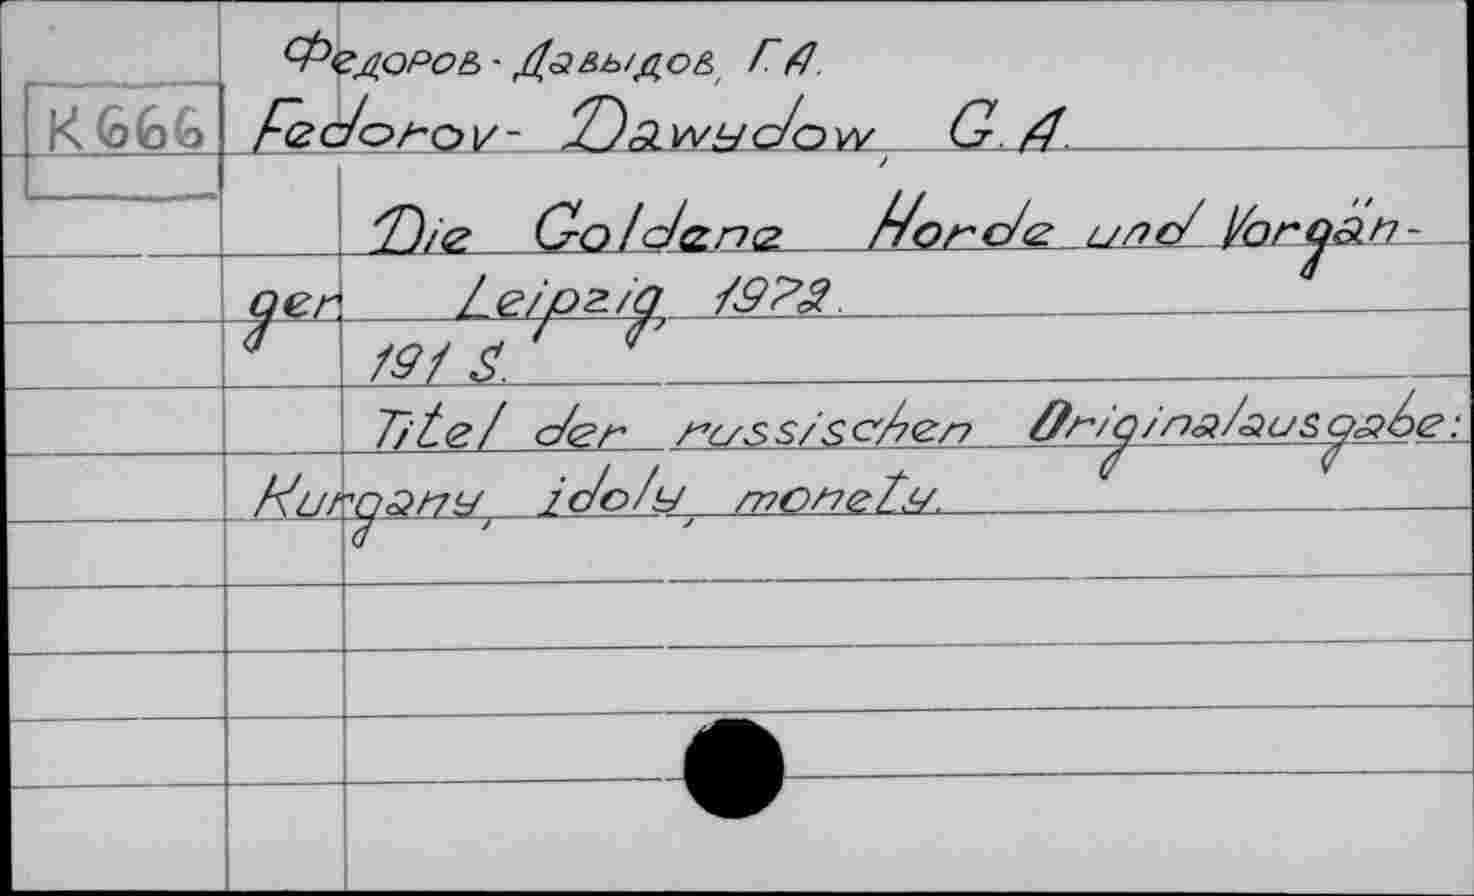 Федоров - Давыдов, Г. А.
K666 Fedorov- Dawydow, G. A.
Die Goldene Horde und Vorgän-
ger Leipzig, 1972.
191 S.
Titel der russischen Originalausgabe:
Kurgany, idoly, monety.